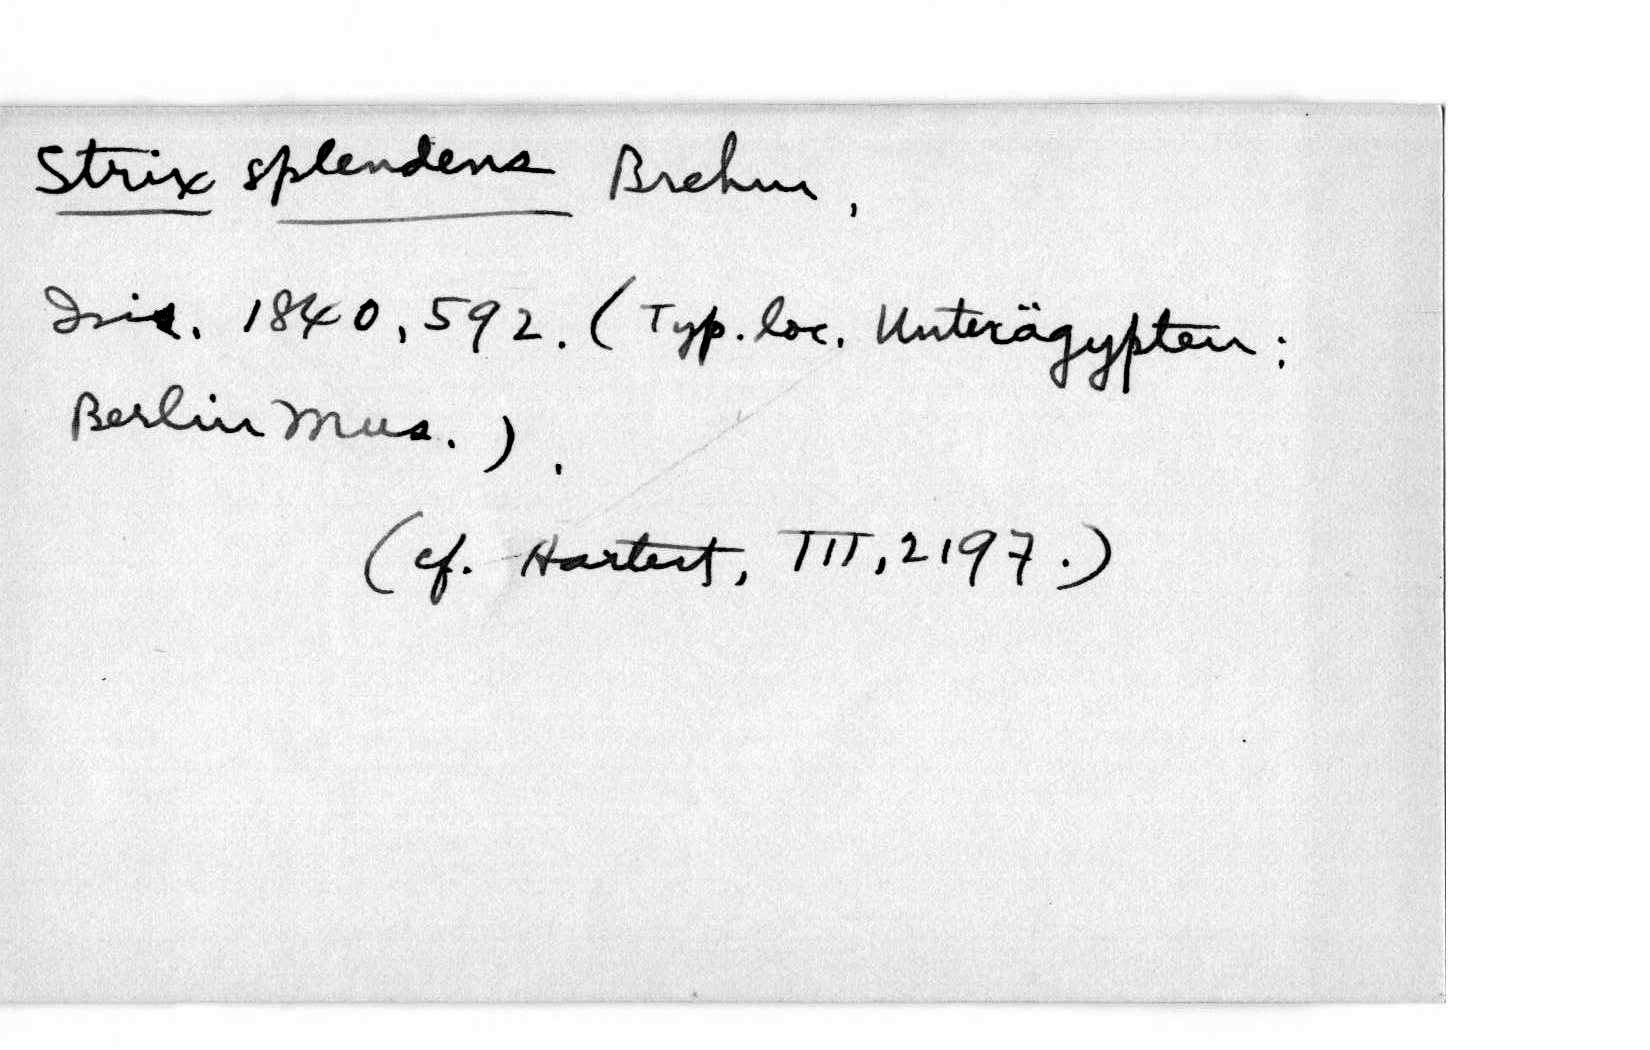 Strix splendens Brehm,
Isis. 1840, 592. (Typ. loc. Unterägypten;
Berlin Mus.).
(cf. Hartert, III, 2197.)